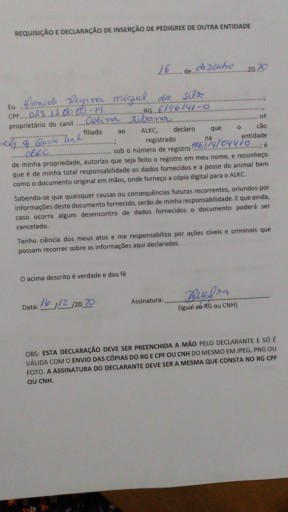 REQUISIÇÃO E DECLARAÇÃO DE INSERÇÃO DE PEDIGREE DE OUTRA ENTIDADE
16 de dezembro 2020
Eu Regina Miguel da Silva,
CPF RG 6196141-0,
proprietário do canil Colina nº
filiado ao ALKC, declaro que o cão
registrado na entidade
sob o número de registro ; é
de minha propriedade, autorizo que seja feito o registro em meu nome, e reconheço
que é de minha total responsabilidade os dados fornecidos e a posse do animal bem
como o documento original em mãos, onde forneço a cópia digital para o ALKC.
Sabendo-se que quaisquer causas ou consequências futuras recorrentes, oriundos por
informações deste documento fornecido, serão de minha responsabilidade. E que ainda,
caso ocorra algum desencontro de dados fornecidos o documento poderá ser
cancelado.
Tenho ciência dos meus atos e me responsabilizo por ações cíveis e criminais que
possam recorrer sobre as informações aqui declaradas.
O acima descrito é verdade e dou fé
Data: 16/12/2020 Assinatura:
(Igual ao RG ou CNH)
OBS: ESTA DECLARAÇÃO DEVE SER PREENCHIDA A MÃO PELO DECLARANTE E SÓ É
VÁLIDA COM O ENVIO DAS CÓPIAS DO RG E CPF OU CNH DO MESMO EM JPEG, PNG OU
FOTO. A ASSINATURA DO DECLARANTE DEVE SER A MESMA QUE CONSTA NO RG CPF
OU CNH.